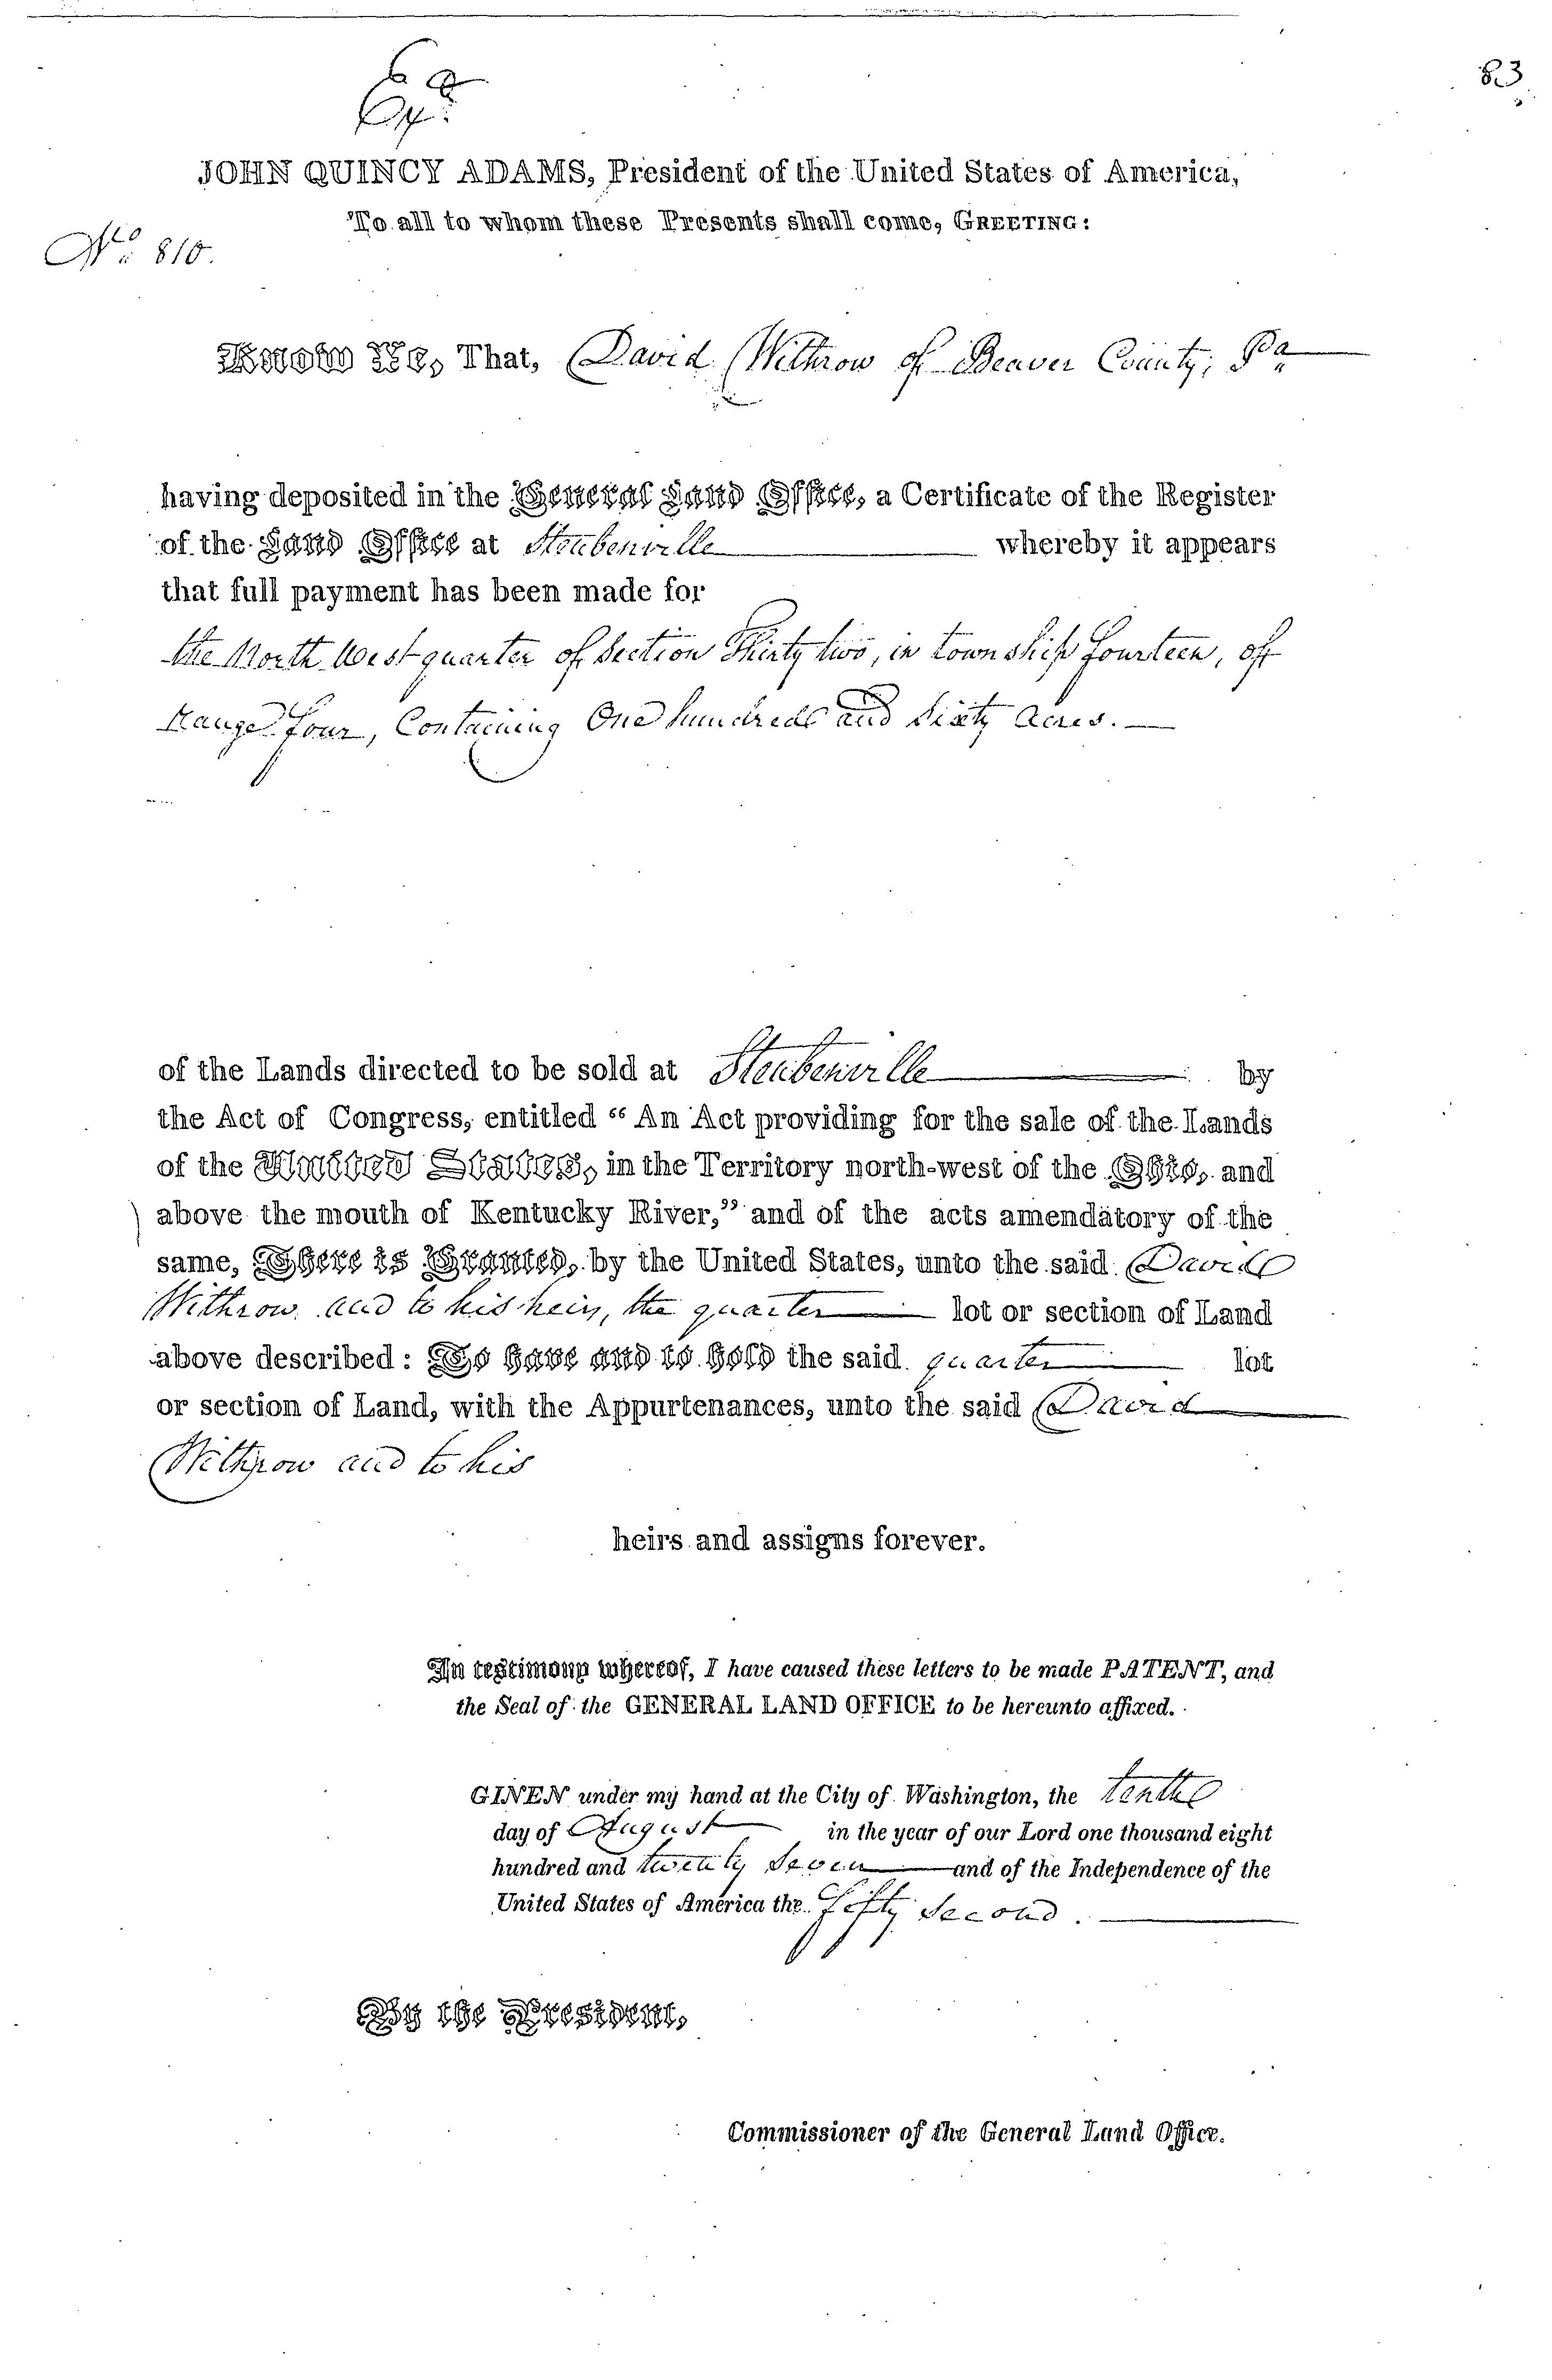 83
Exd
JOHN QUINCY ADAMS, President of the United States of America,
To all to whom these Presents shall come, GREETING:
No. 810.
Know Ye, That, David Withrow of Beaver County, Pa
having deposited in the General Land Office, a Certificate of the Register
of the Land Office at Steubenville whereby it appears
that full payment has been made for
the North West quarter of Section Thirty two, in township fourteen, of
Range four, Containing One hundred and Sixty Acres.
of the Lands directed to be sold at Steubenville by
the Act of Congress, entitled “An Act providing for the sale of the Lands
of the United States, in the Territory north-west of the Ohio, and
above the mouth of Kentucky River,” and of the acts amendatory of the
same, There is Granted, by the United States, unto the said David
Withrow and to his heirs, the quarter lot or section of Land
above described: To have and to hold the said quarter lot
or section of Land, with the Appurtenances, unto the said David
Withrow and to his
heirs and assigns forever.
In testimony whereof, I have caused these letters to be made PATENT, and
the Seal of the GENERAL LAND OFFICE to be hereunto affixed.
GIVEN under my hand at the City of Washington, the tenth
day of August in the year of our Lord one thousand eight
hundred and twenty Seven and of the Independence of the
United States of America the fifty Second.
By the President,
Commissioner of the General Land Office.